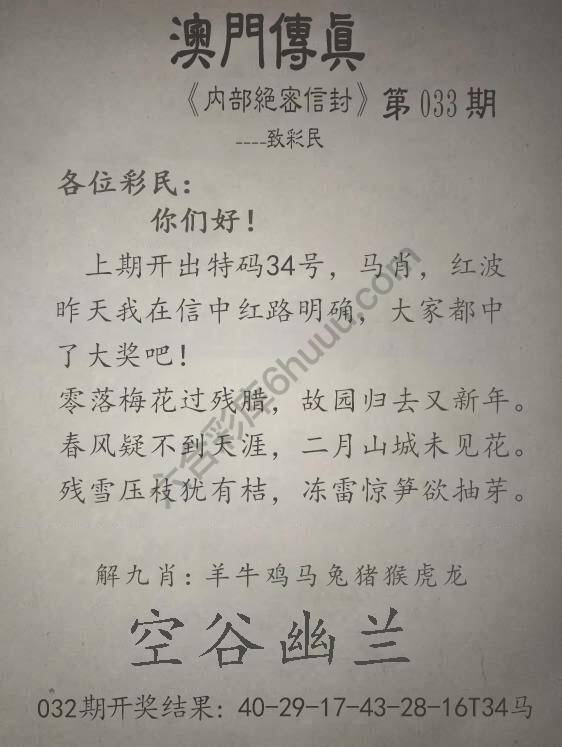 澳門傳真
《内部絕密信封》第033期
----致彩民
各位彩民：
你们好！
上期开出特码34号，马肖，红波
昨天我在信中红路明确，大家都中
了大奖吧！
零落梅花过残腊，故园归去又新年。
春风疑不到天涯，二月山城未见花。
残雪压枝犹有桔，冻雷惊笋欲抽芽。
六合彩库6huuu.com
解九肖：羊牛鸡马兔猪猴虎龙
空谷幽兰
032期开奖结果：40-29-17-43-28-16T34马